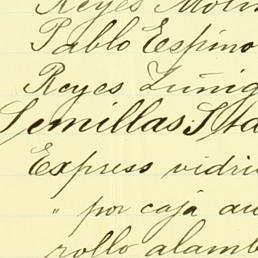 Reyes Molin
Pablo Espino
Reyes Zúñig
Semillas Ita
Express vidri
" por caja au
rollo alamb